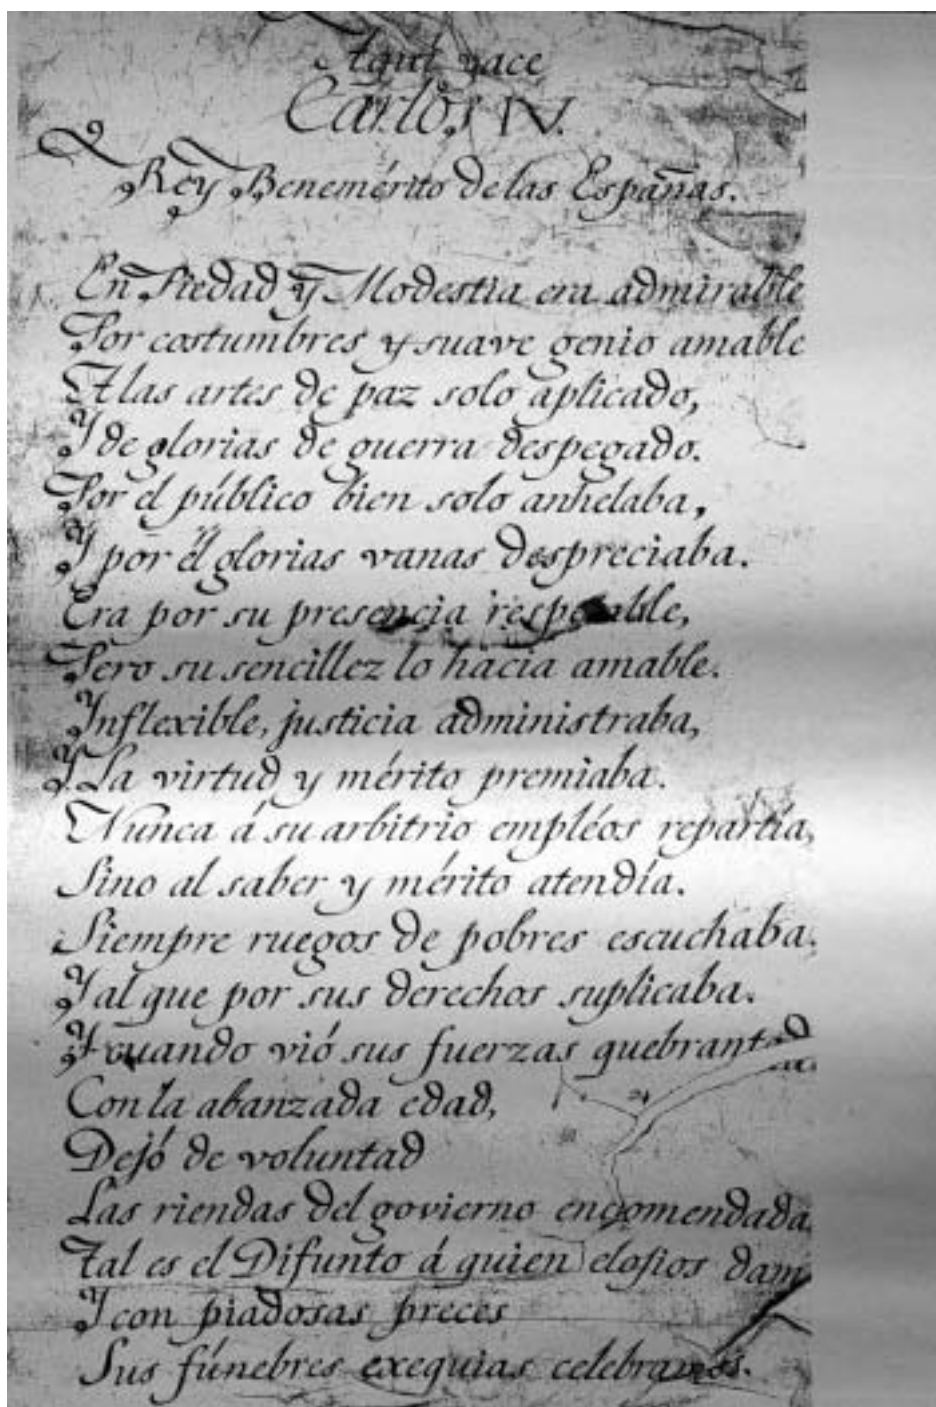 Aqui yace
Carlos IV.
Rey Benemérito de las Españas.
En Piedad y Modestia era admirable
Por costumbres y suave genio amable
A las artes de paz solo aplicado,
Y de glorias de guerra despegado.
Por el público bien solo anhelaba,
Y por él glorias vanas despreciaba.
Era por su presencia respetable,
Pero su sencillez lo hacia amable.
Inflexible, justicia administraba,
Y la virtud y mérito premiaba.
Nunca á su arbitrio empléos repartía,
Sino al saber y mérito atendía.
Siempre ruegos de pobres escuchaba,
Y al que por sus derechos suplicaba.
Y cuando vió sus fuerzas quebrantadas
Con la abanzada edad,
Dejó de voluntad
Las riendas del govierno encomendada
Tal es el Difunto á quien elogios dam
Y con piadosas preces
Sus fúnebres exequias celebramos.